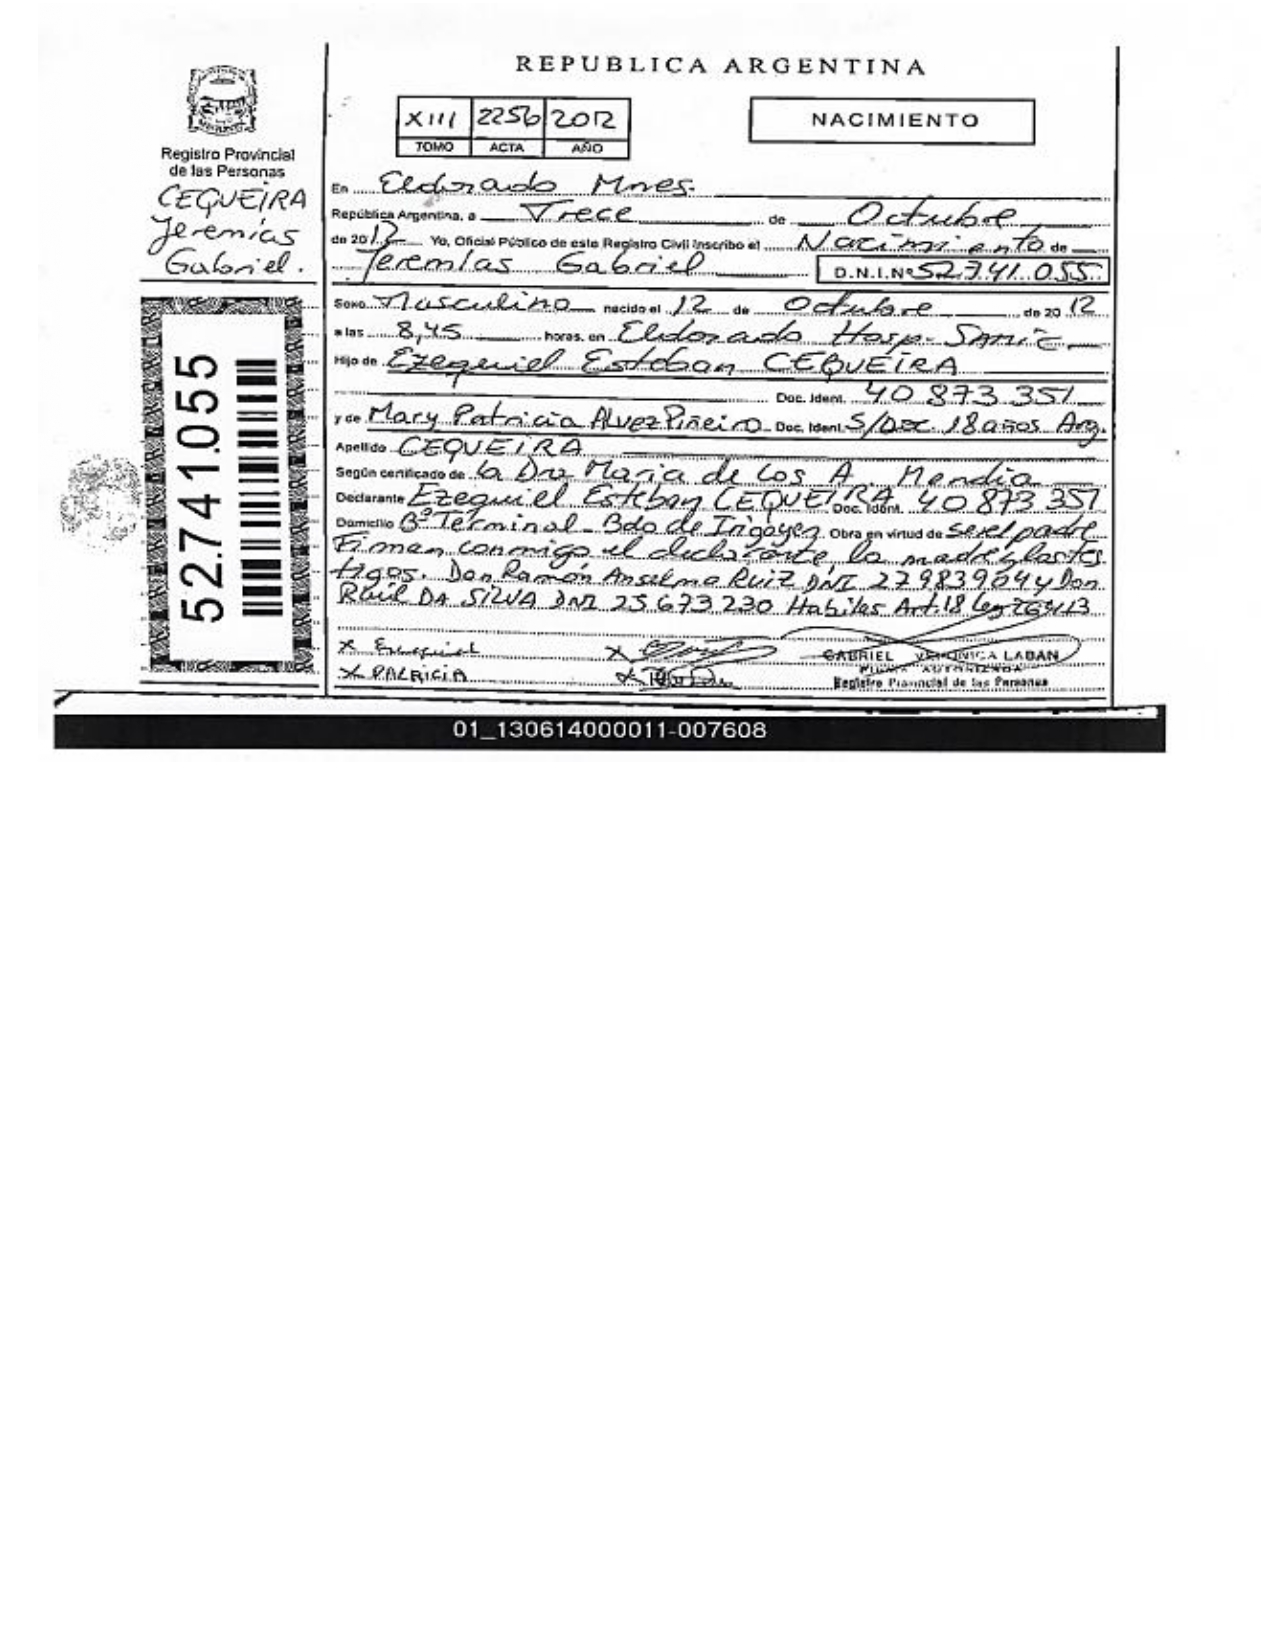 REPUBLICA ARGENTINA
XIII 2256 2012
TOMO ACTA AÑO
NACIMIENTO
Registro Provincial
de las Personas
CEQUEIRA
Jeremías
Gabriel.
52.741.055
En Eldorado Mnes.
República Argentina, a Trece de Octubre
de 2012 Yo, Oficial Público de este Registro Civil inscribo el Nacimiento de
Jeremías Gabriel D.N.I.Nº 52.741.055
Sexo Masculino nacido el 12 de Octubre de 2012
a las 8,45 horas, en Eldorado Hosp. SAMIC
Hijo de Ezequiel Esteban CEQUEIRA
Doc. Ident. 40 873 351
y de Mary Patricia Alvez Piñeiro Doc. Ident. S/Doc. 18 años Arg.
Apellido CEQUEIRA
Según certificado de la Dra Maria de Los A. Mendia
Declarante Ezequiel Esteban CEQUEIRA Doc. Ident. 40 873 351
Domicilio Bº Terminal - Bdo de Irigoyen Obra en virtud de ser el padre
Firman conmigo el declarante, la madre y los tes
tigos. Don Ramón Anselmo Ruiz DNI 27983904 y Don
Raúl DA SILVA DNI 25 673 230 Habiles Art. 18 Ley 26413
X Ezequiel X
X PATRICIA X
GABRIEL VERONICA LABAN
FIRMA AUTORIZADA
Registro Provincial de las Personas
01_130614000011-007608